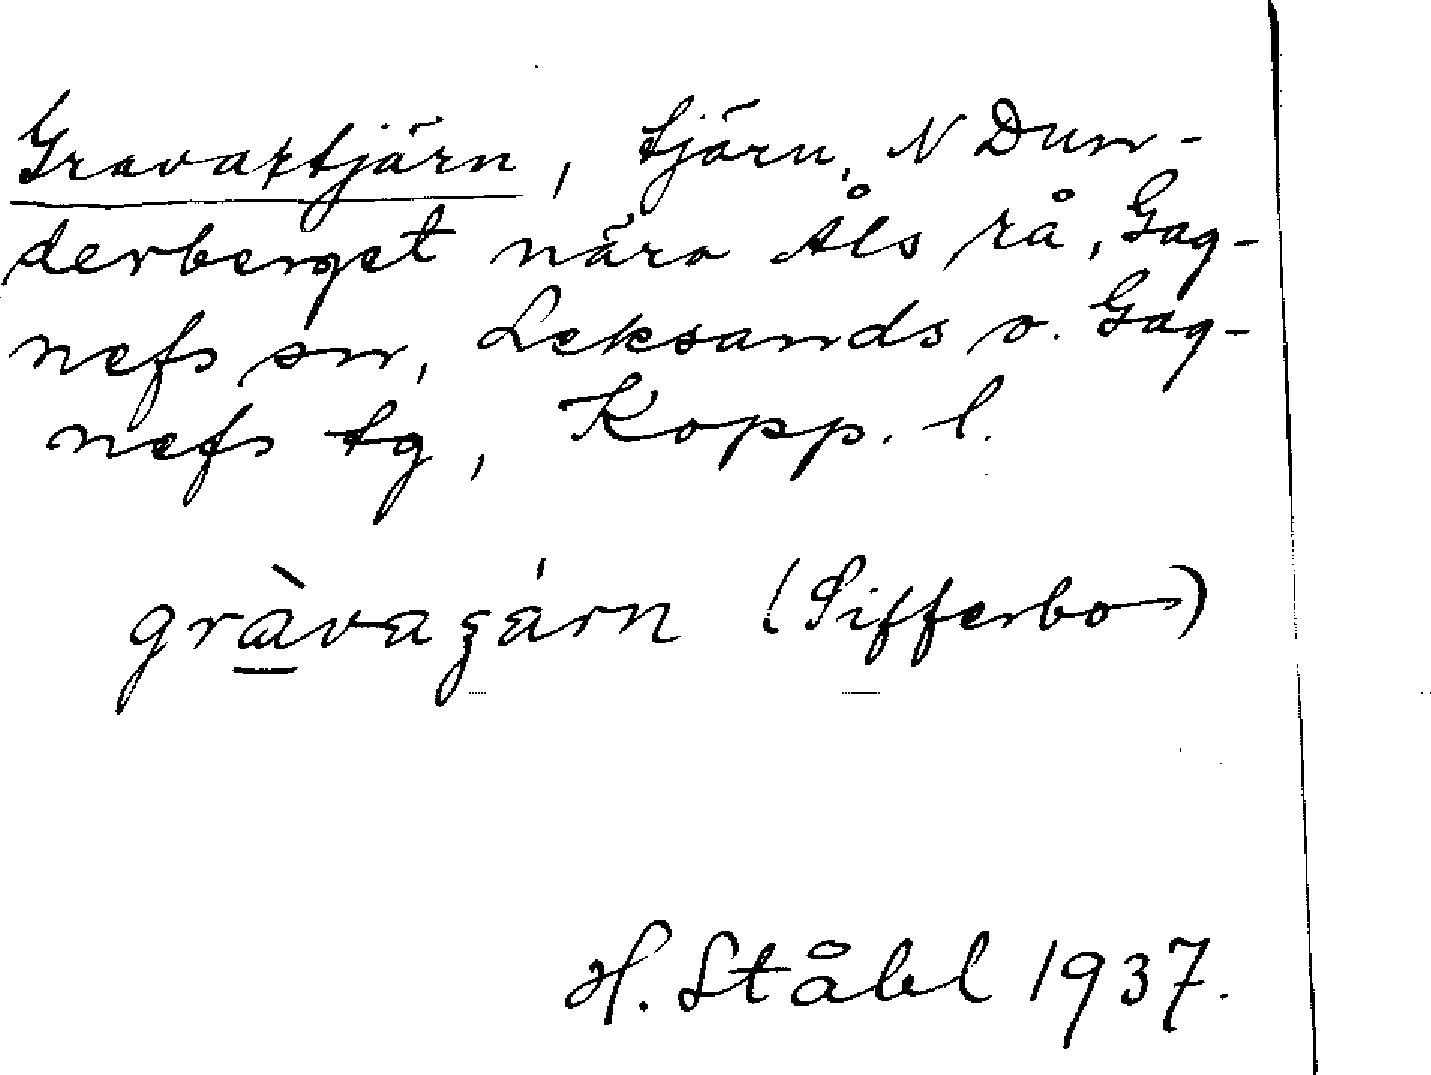 Gravastjärn, tjärn, N Dun-
derberget nära Åls rå, Gag-
nefs sn, Leksands o. Gag-
nefs tg, Kopp. l.
gràvaʒárn (Sifferbo)
H. Ståhl 1937.